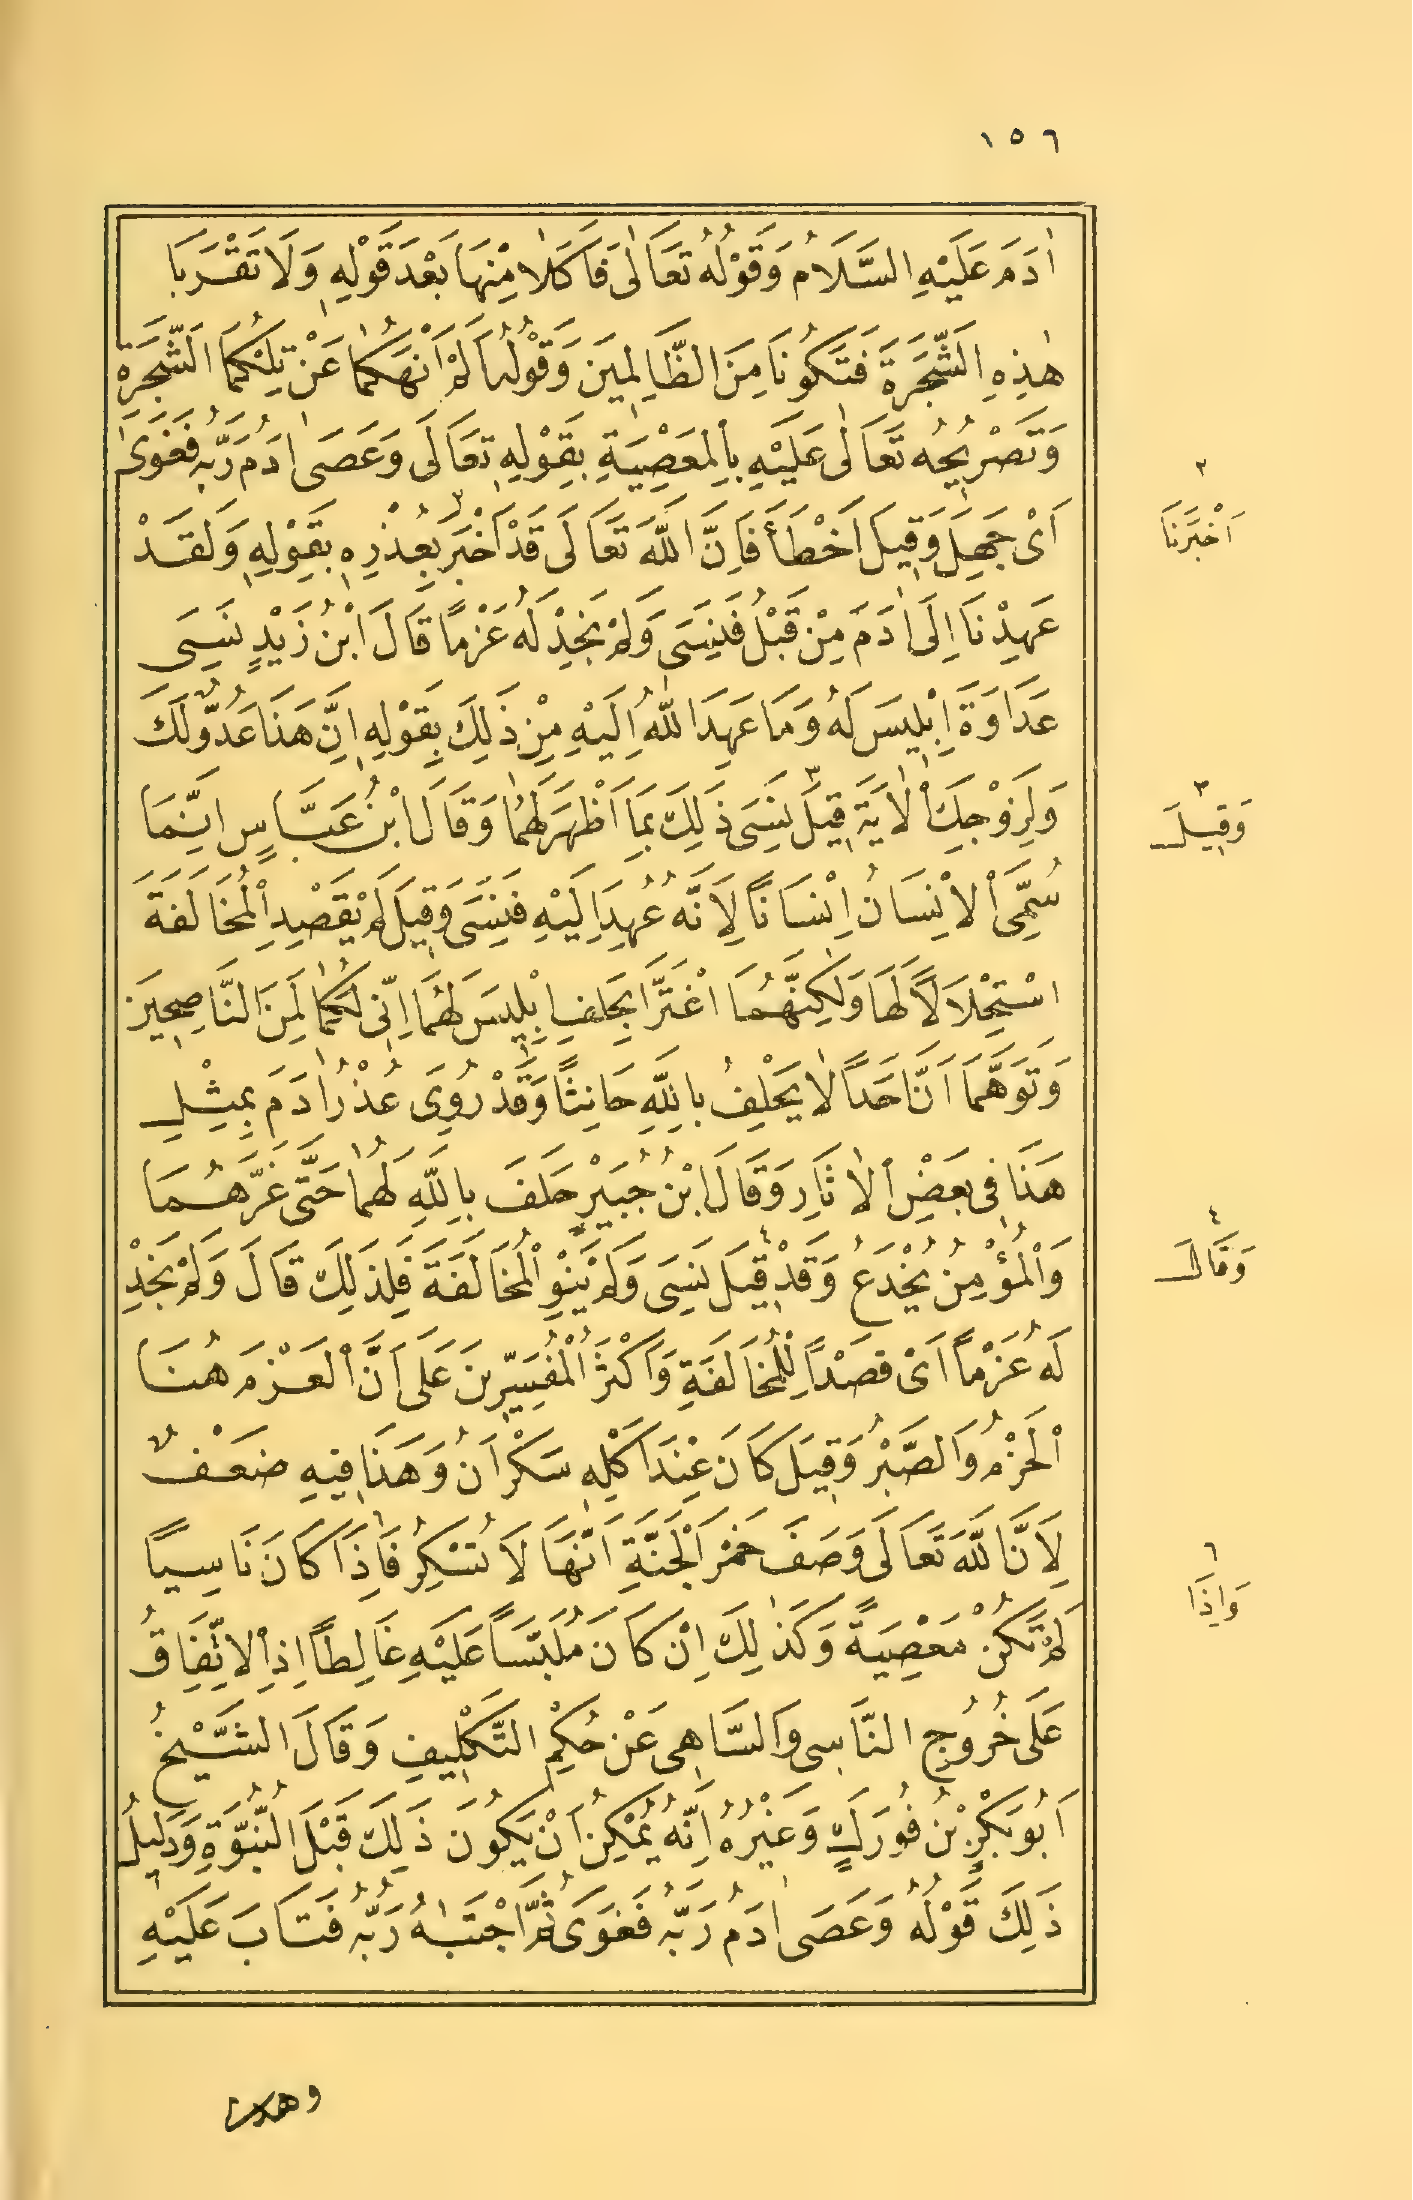 ١٥٦
اٰدَمَ عَلَيْهِ السَّلَامُ وَقَوْلُهُ تَعَالٰى فَاَكَلَا مِنْهَا بَعْدَ قَوْلِهِ وَلَا تَقْرَبَا
هٰذِهِ الشَّجَرَةَ فَتَكُونَا مِنَ الظَّالِمِينَ وَقَوْلُهُ اَلَمْ اَنْهَكُمَا عَنْ تِلْكُمَا الشَّجَرَةِ
وَتَصْرِيحُهُ تَعَالٰى عَلَيْهِ بِالْمَعْصِيَةِ بِقَوْلِهِ تَعَالَى وَعَصَى اٰدَمُ رَبَّهُ فَغَوٰى
اَىْ جَهِلَ وَقِيلَ اَخْطَأَ فَاِنَّ اللّٰهَ تَعَالَى قَدْ اَخْبَرَ ٢ بِعُذْرِهِ بِقَوْلِهِ وَلَقَدْ
عَهِدْنَا اِلَى اٰدَمَ مِنْ قَبْلُ فَنَسِىَ وَلَمْ نَجِدْ لَهُ عَزْمًا قَالَ ابْنُ زَيْدٍ نَسِىَ
عَدَاوَةَ اِبْلِيسَ لَهُ وَمَا عَهِدَ اللّٰهُ اِلَيْهِ مِنْ ذَلِكَ بِقَوْلِهِ اِنَّ هَذَا عَدُوٌّ لَكَ
وَلِزَوْجِكَ اْلاٰيَةَ قِيلَ ٣ نَسِىَ ذَلِكَ بِمَا اَظْهَرَ لَهُمَا وَقَالَ ابْنُ عَبَّاسٍ اِنَّمَا
سُمِّىَ اْلاِنْسَانُ اِنْسَانًا لِاَنَّهُ عُهِدَ اِلَيْهِ فَنَسِىَ وَقِيلَ لَمْ يَقْصِدِ الْمُخَالَفَةَ
اسْتِحْلَالًا لَهَا وَلَكِنَّهُمَا اغْتَرَّا بِحَلِفِ اِبْلِيسَ لَهُمَا اِنِّى لَكُمَا لَمِنَ النَّاصِحِينَ
وَتَوَهَّمَا اَنَّ اَحَدًا لَا يَحْلِفُ بِاللّٰهِ حَانِثًا وَقَدْ رُوِىَ عُذْرُ اٰدَمَ بِمِثْلِ
هَذَا فِى بَعْضِ اْلاٰثَارِ وَقَالَ ابْنُ جُبَيْرٍ حَلَفَ بِاللّٰهِ لَهُمَا حَتَّى غَرَّهُمَا
وَالْمُؤْمِنُ يُخْدَعُ وَقَدْ قِيلَ ٤ نَسِىَ وَلَمْ يَنْوِ الْمُخَالَفَةَ فَلِذَلِكَ قَالَ وَلَمْ نَجِدْ
لَهُ عَزْمًا اَىْ قَصْدًا لِلْمُخَالَفَةِ وَاَكْثَرُ الْمُفَسِّرِينَ عَلَى اَنَّ الْعَزْمَ هُنَا
اَلْحَزْمُ وَالصَّبْرُ وَقِيلَ كَانَ عِنْدَ اَكْلِهِ سَكْرَانُ وَهَذَا فِيهِ ضَعْفٌ
لِاَنَّ اللّٰهَ تَعَالَى وَصَفَ خَمْرَ الْجَنَّةِ اَنَّهَا لَا تُسْكِرُ فَاِذَا ٦ كَانَ نَاسِيًا
لَمْ تَكُنْ مَعْصِيَةً وَكَذٰلِكَ اِنْ كَانَ مُلَبَّسًا عَلَيْهِ غَالِطًا اِذِ اْلاِتِّفَاقُ
عَلَى خُرُوجِ النَّاسِى وَالسَّاهِى عَنْ حُكْمِ التَّكْلِيفِ وَقَالَ الشَّيْخُ
اَبُو بَكْرِ بْنُ فُورَكٍ وَغَيْرُهُ اِنَّهُ يُمْكِنُ اَنْ يَكُونَ ذَلِكَ قَبْلَ النُّبُوَّةِ وَدَلِيلُ
ذَلِكَ قَوْلُهُ وَعَصَى اٰدَمُ رَبَّهُ فَغَوَى ثُمَّ اجْتَبٰهُ رَبُّهُ فَتَابَ عَلَيْهِ
٢
اَخْبَرَنَا
٣
وَقِيلَ
٤
وَقَالَ
٦
وَاِذَا